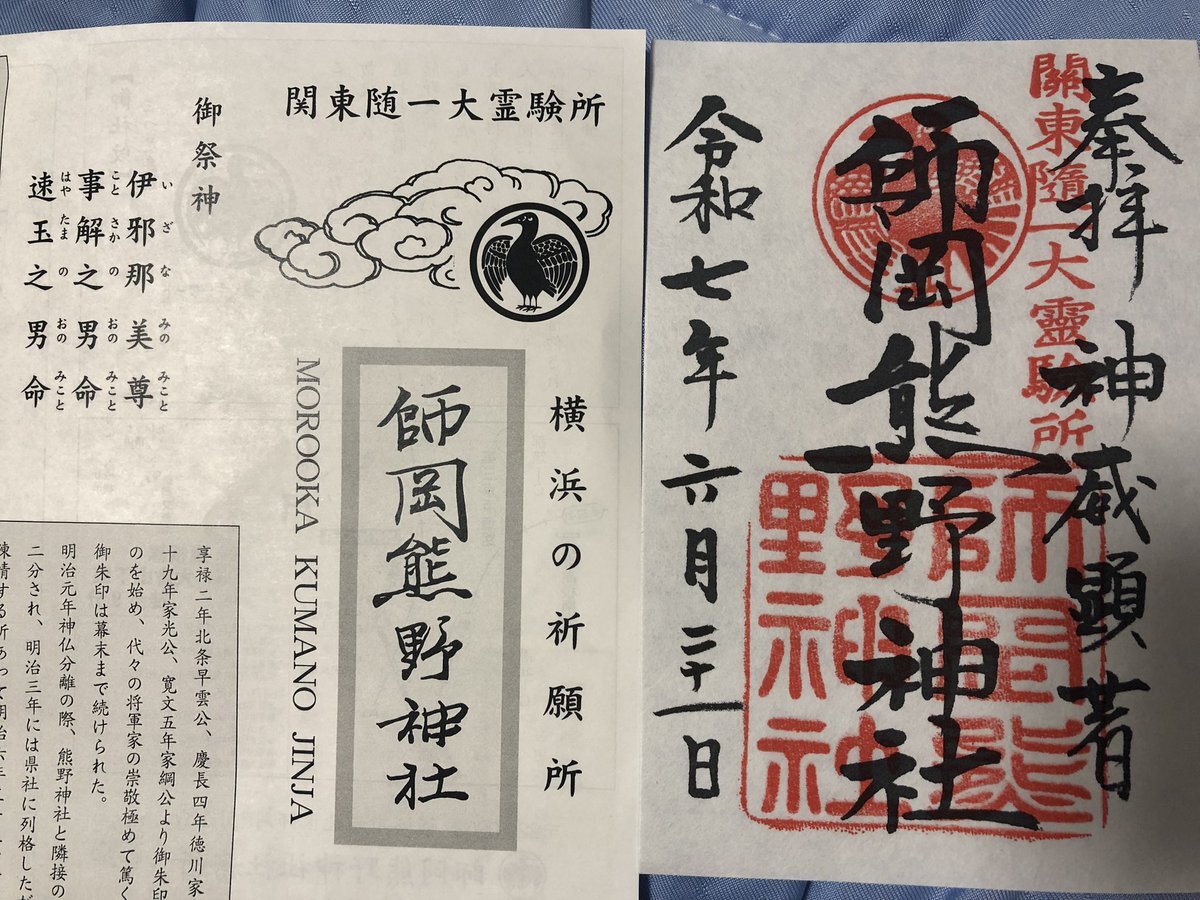 関東随一大霊験所
横浜の祈願所
師岡熊野神社
MOROOKA KUMANO JINJA
御祭神
伊邪那美尊
いざなみのみこと
事解之男命
ことさかのおのみこと
速玉之男命
はやたまのおのみこと
享禄二年北条早雲公、慶長四年徳川家
十九年家光公、寛文五年家綱公より御朱印
のを始め、代々の将軍家の崇敬極めて篤く
御朱印は幕末まで続けられた。
明治元年神仏分離の際、熊野神社と隣接の
二分され、明治三年には県社に列格しただ
陳情する所あって明治六年
奉拝 神威顕著
關東隨一大靈驗所
師岡熊野神社
師岡熊野神社
令和七年六月二十一日